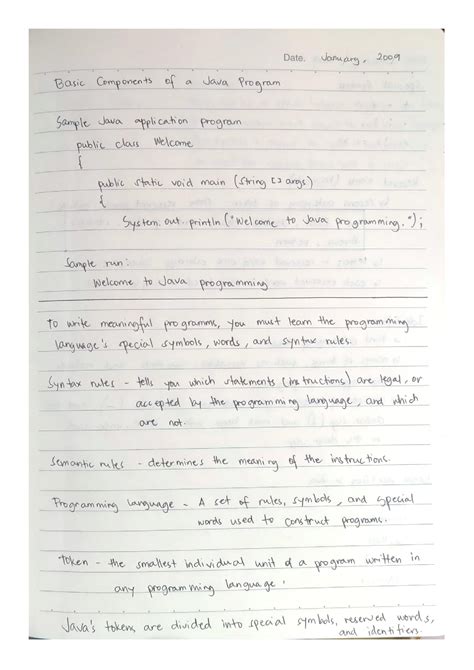 Date. January, 2009
Basic Components of a Java Program
Sample Java application program
public class Welcome
{
public static void main (String [] args)
{
System.out.println ("Welcome to Java programming.");
Sample run:
Welcome to Java programming
To write meaningful programms, you must learn the programming
language's special symbols, words, and syntax rules.
Syntax rules - tells you which statements (instructions) are legal, or
accepted by the programming language, and which
are not.
Semantic rules - determines the meaning of the instructions.
Programming language - A set of rules, symbols, and special
words used to construct programs.
Token - the smallest individual unit of a program written in
any programming language.
Java's tokens are divided into special symbols, reserved words,
and identifiers.